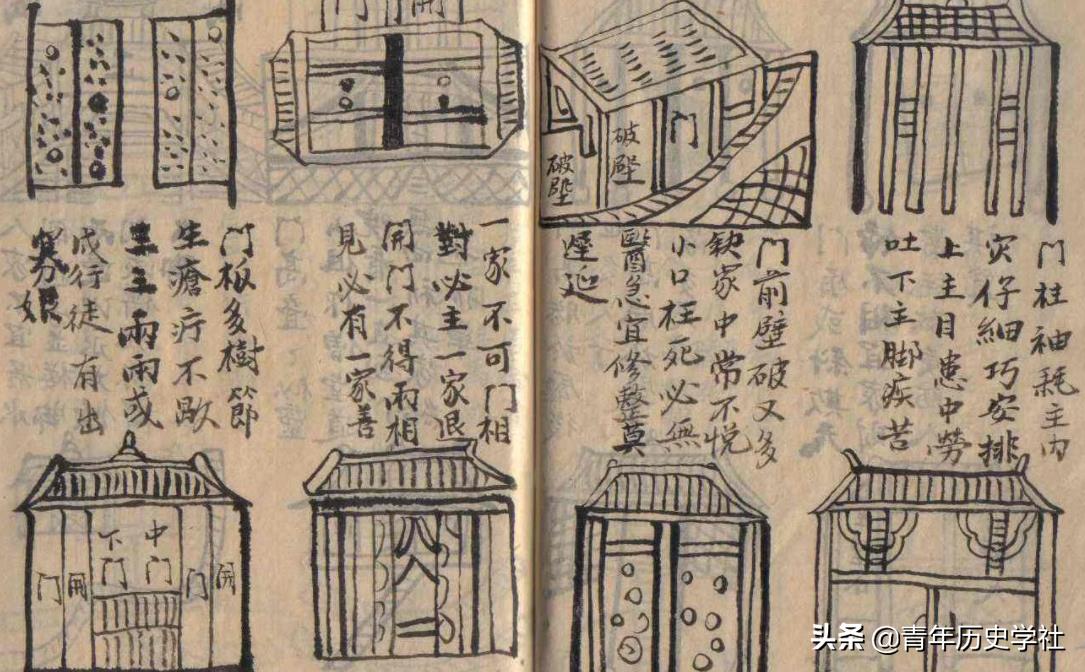 门
破壁
破壁
门柱袖耗主内
灾仔細巧安排
上主目患中勞
吐下主脚疾苦
门前壁破又多
缺家中常不悦
小口枉死必無
醫急宜修整莫
遲延
门 開
一家不可门相
對必主一家退
開门不得兩相
見必有一家善
门板多樹節
生瘡疔不歇
三三兩兩或
成行徒有出
娘
開
门
中门
下门
開
门
头条 @青年历史学社